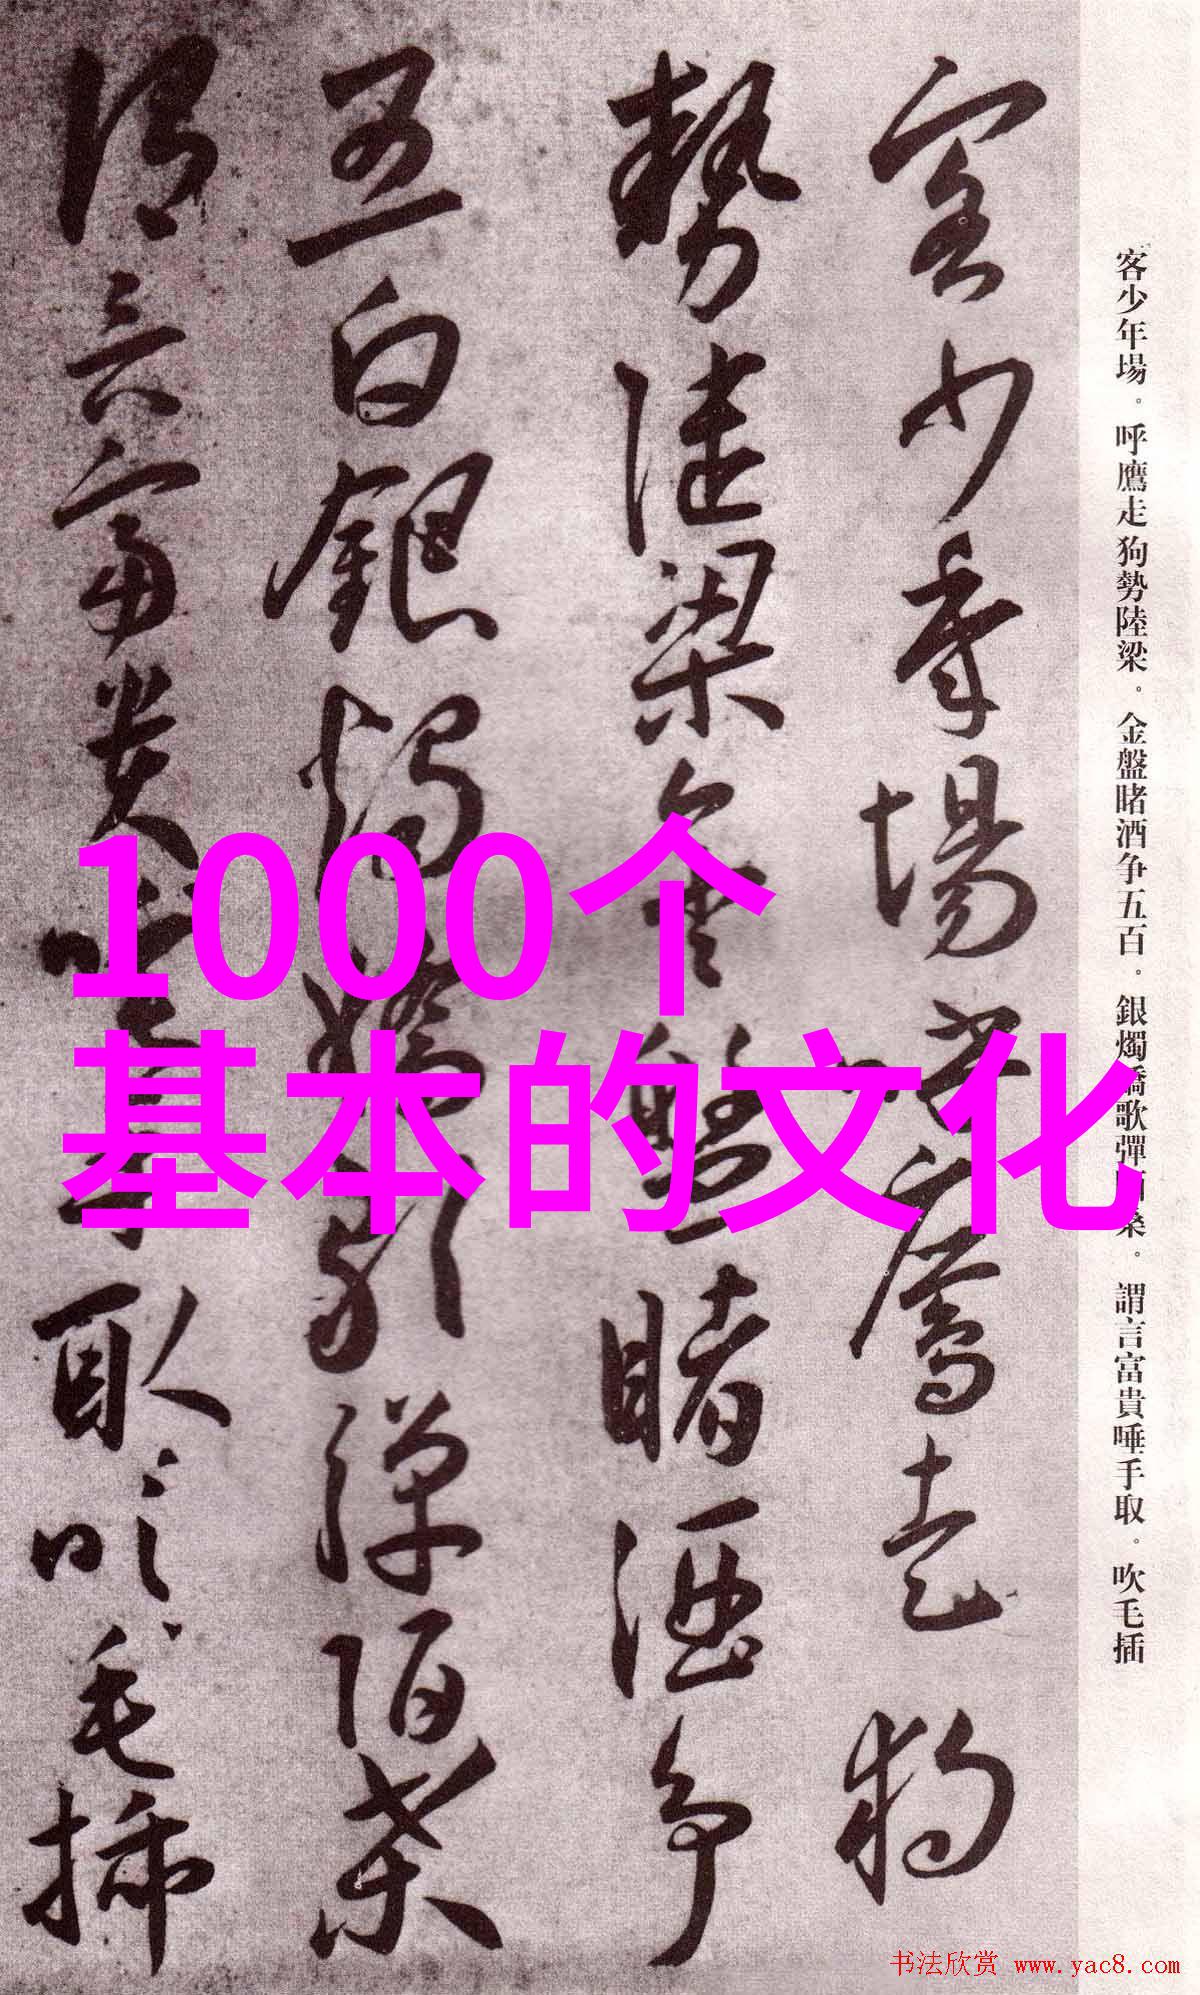 客少年場。呼鷹走狗勢陸梁。金盤賭酒争五百。銀燭嬌歌彈陌桑。謂言富貴唾手取。吹毛插
客少年場呼鷹走狗
勢陸梁金盤賭酒争
五白銀燭嬌歌彈陌桑
謂言富貴唾手取吹毛插
1000个
基本的文化
书法欣赏 www.yac8.com